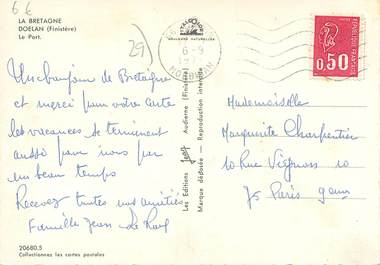 66
LA BRETAGNE
DOELAN (Finistère)
Le Port.
29)
6-9
MORBIHAN
REPUBLIQUE FRANCAISE
0,50
Un bonjour de Bretagne
et merci pour votre carte
les vacances se terminent
aussi pour nous par
un beau temps
Recevez toutes nos amitiés
Famille Jean Le
Les Editions JOS Audierne (Finistère)
Marque déposée — Reproduction interdite
Mademoiselle
Marguerite Charpentier
10 Rue Vignon 10
75 Paris 9em
20680.5
Collectionnez les cartes postales